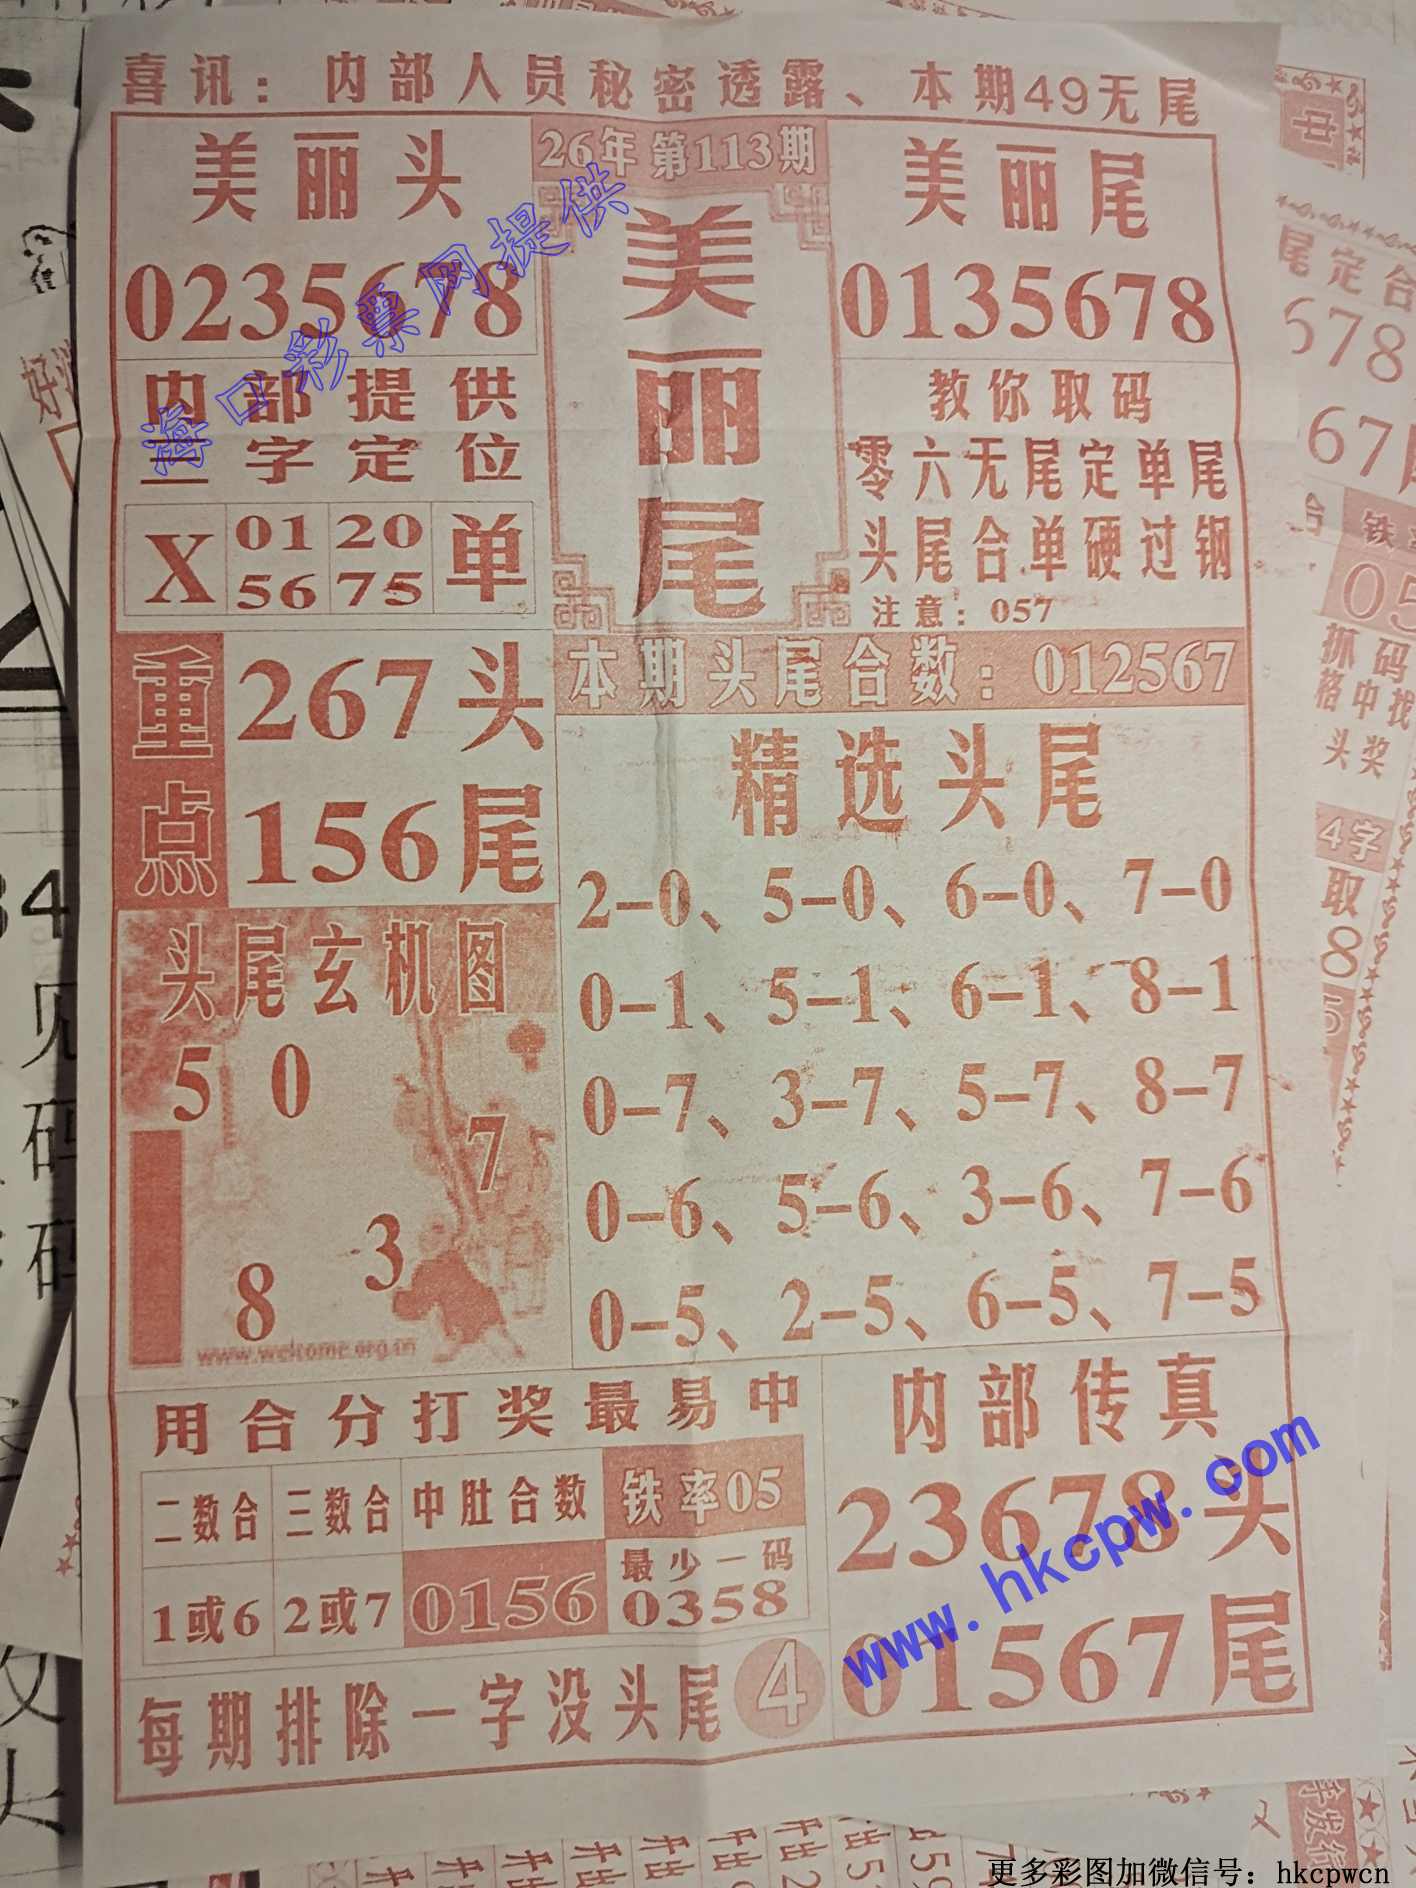 喜讯：内部人员秘密透露、本期49无尾
美丽头
0235678
26年第113期
美丽尾
美丽尾
0135678
内部提供
二字定位
X
01
56
20
75
单
教你取码
零六无尾定单尾
头尾合单硬过钢
注意：057
重点
267头
156尾
本期头尾合数：012567
精选头尾
2-0、5-0、6-0、7-0
0-1、5-1、6-1、8-1
0-7、3-7、5-7、8-7
0-6、5-6、3-6、7-6
0-5、2-5、6-5、7-5
头尾玄机图
5 0
7
3
8
www.welcome.org.cn
用合分打奖最易中
二数合
三数合
中肚合数
铁率05
1或6
2或7
0156
最少一码
0358
每期排除一字没头尾
4
内部传真
23678头
01567尾
海口彩票网提供
www.hkcpw.com
更多彩图加微信号：hkcpwcn
尾定合
678
67尾
铁率
05
抓码
格中找
头奖
4字
取
8
见
码
码